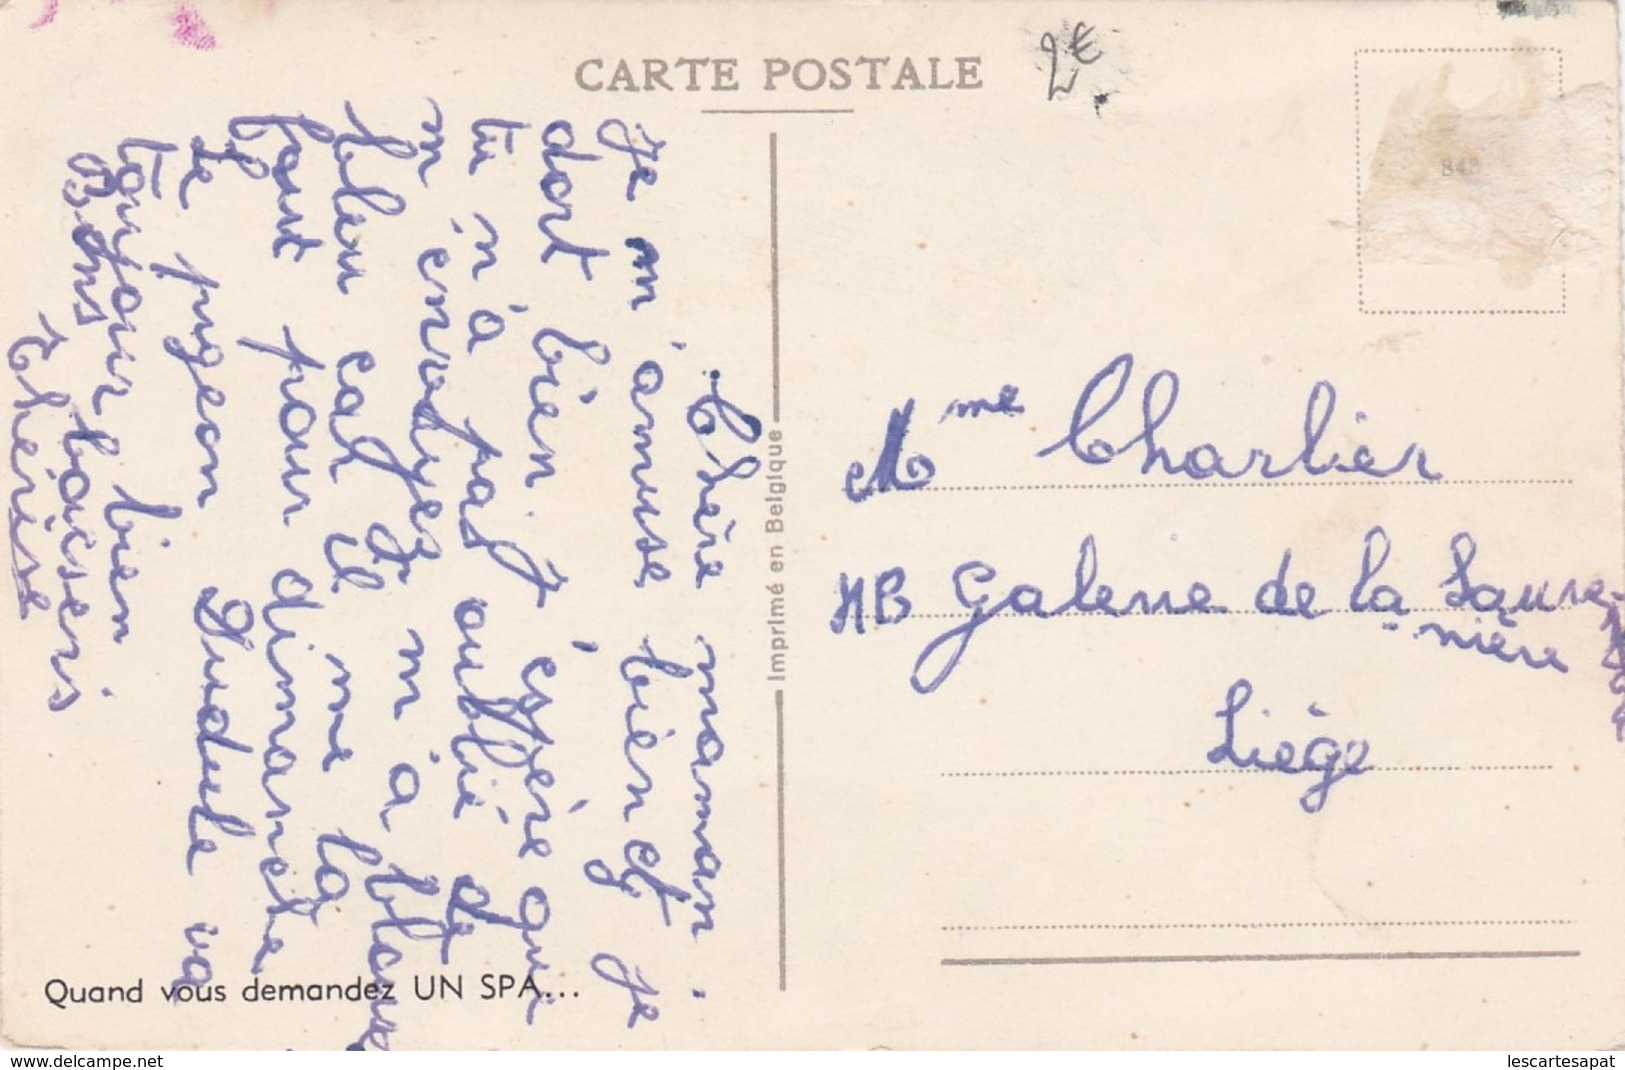 CARTE POSTALE
2€
848
Chère maman.
Je m'amuse bien et je
dort bien j'éspère que
tu n'a pas oublié de
m'envoyer ma blouse
bleu car il me la
faut pour dimanche
Le pigeon Dudule va
toujour bien
Bons baisers
Thérèse
Imprimé en Belgique
Mme Charlier
Galerie de la Sauve
nière
Liège
Quand vous demandez UN SPA...
www.delcampe.net
lescartesapat